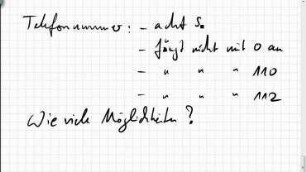 Telefonnummer: - acht S.
- fängt nicht mit 0 an
- " " " 110
- " " " 112
Wie viele Möglichkeiten?